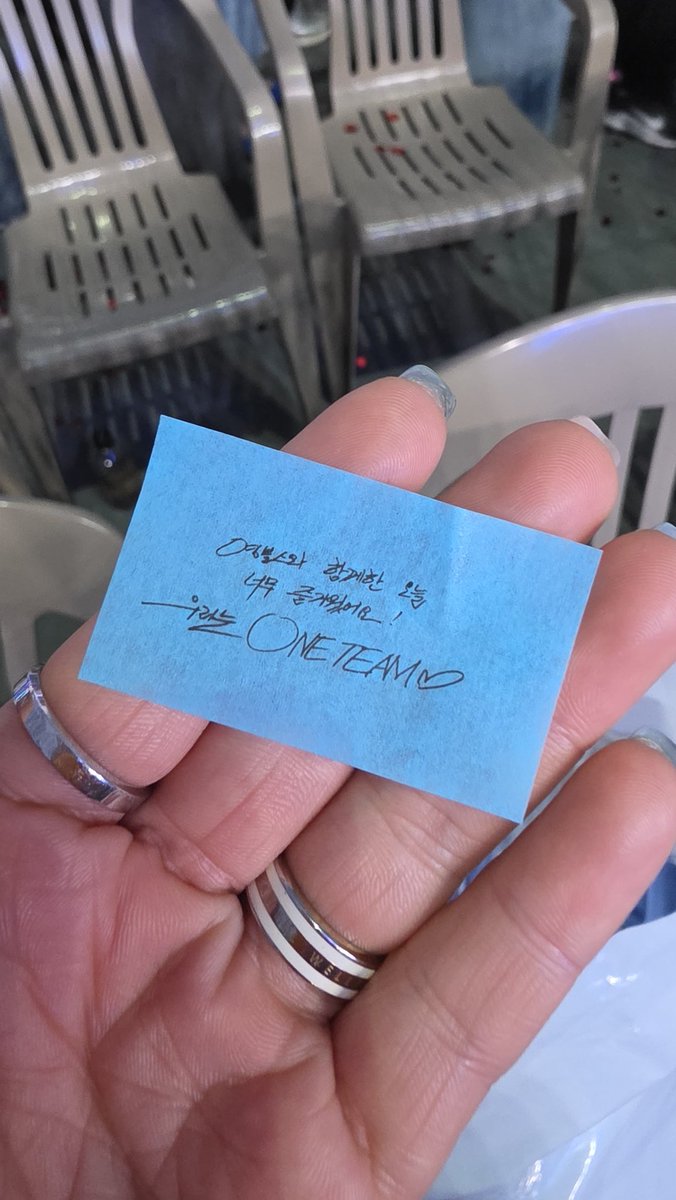 영보스와 함께한 오늘
너무 즐거웠어요!
우리는 ONE TEAM♡